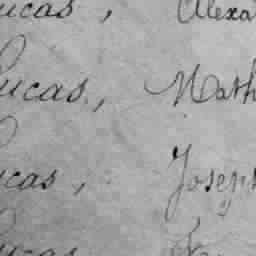 ucas, Alexa
Lucas, Math
ucas, Joseph
ucas